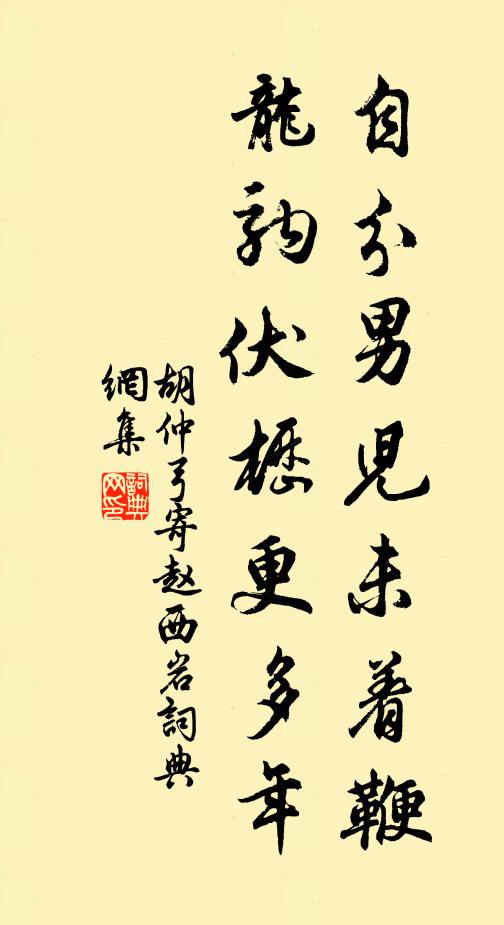 自分男兒未着鞭
龍駒伏櫪更多年
胡仲弓寄赵西岩詞典
網集
詞典
网印